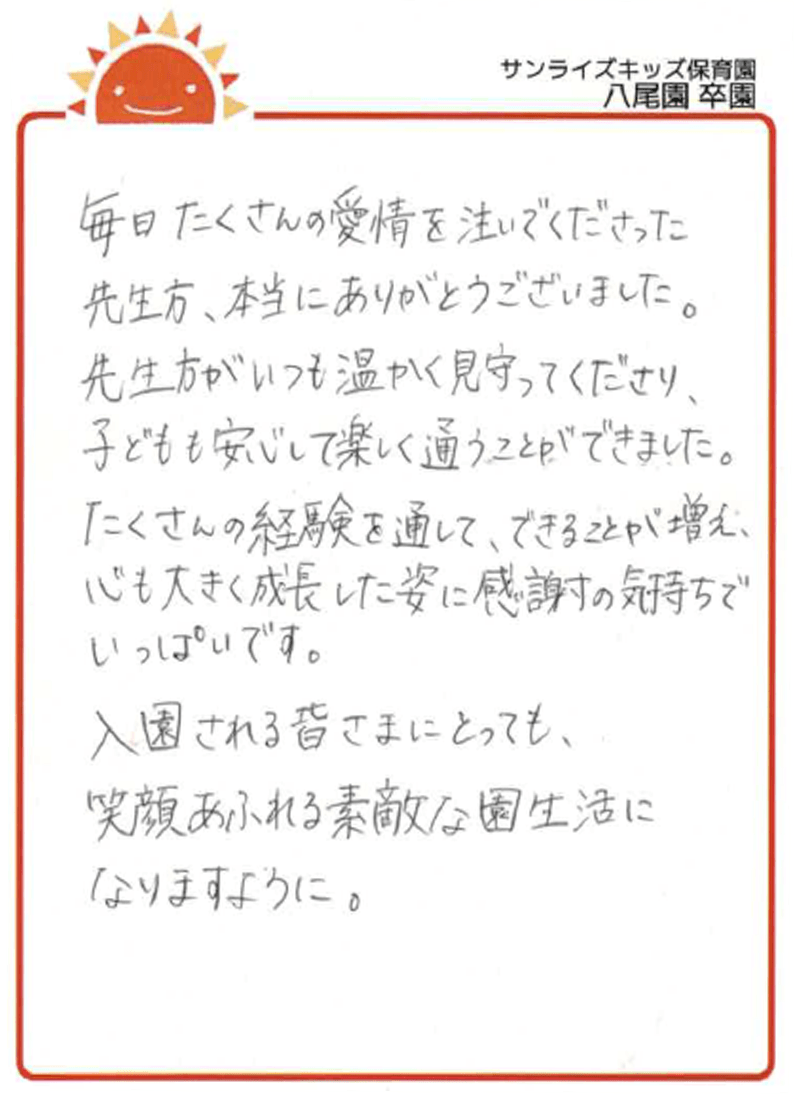 サンライズキッズ保育園
八尾園 卒園
毎日たくさんの愛情を注いでくださった
先生方、本当にありがとうございました。
先生方がいつも温かく見守ってくださり、
子どもも安心して楽しく通うことができました。
たくさんの経験を通して、できることが増え、
心も大きく成長した姿に感謝の気持ちで
いっぱいです。
入園される皆さまにとっても、
笑顔あふれる素敵な園生活に
なりますように。